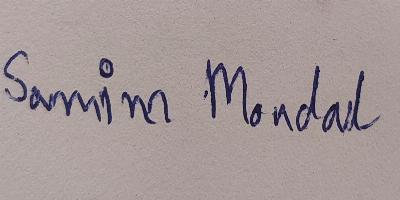 Samim Mondal